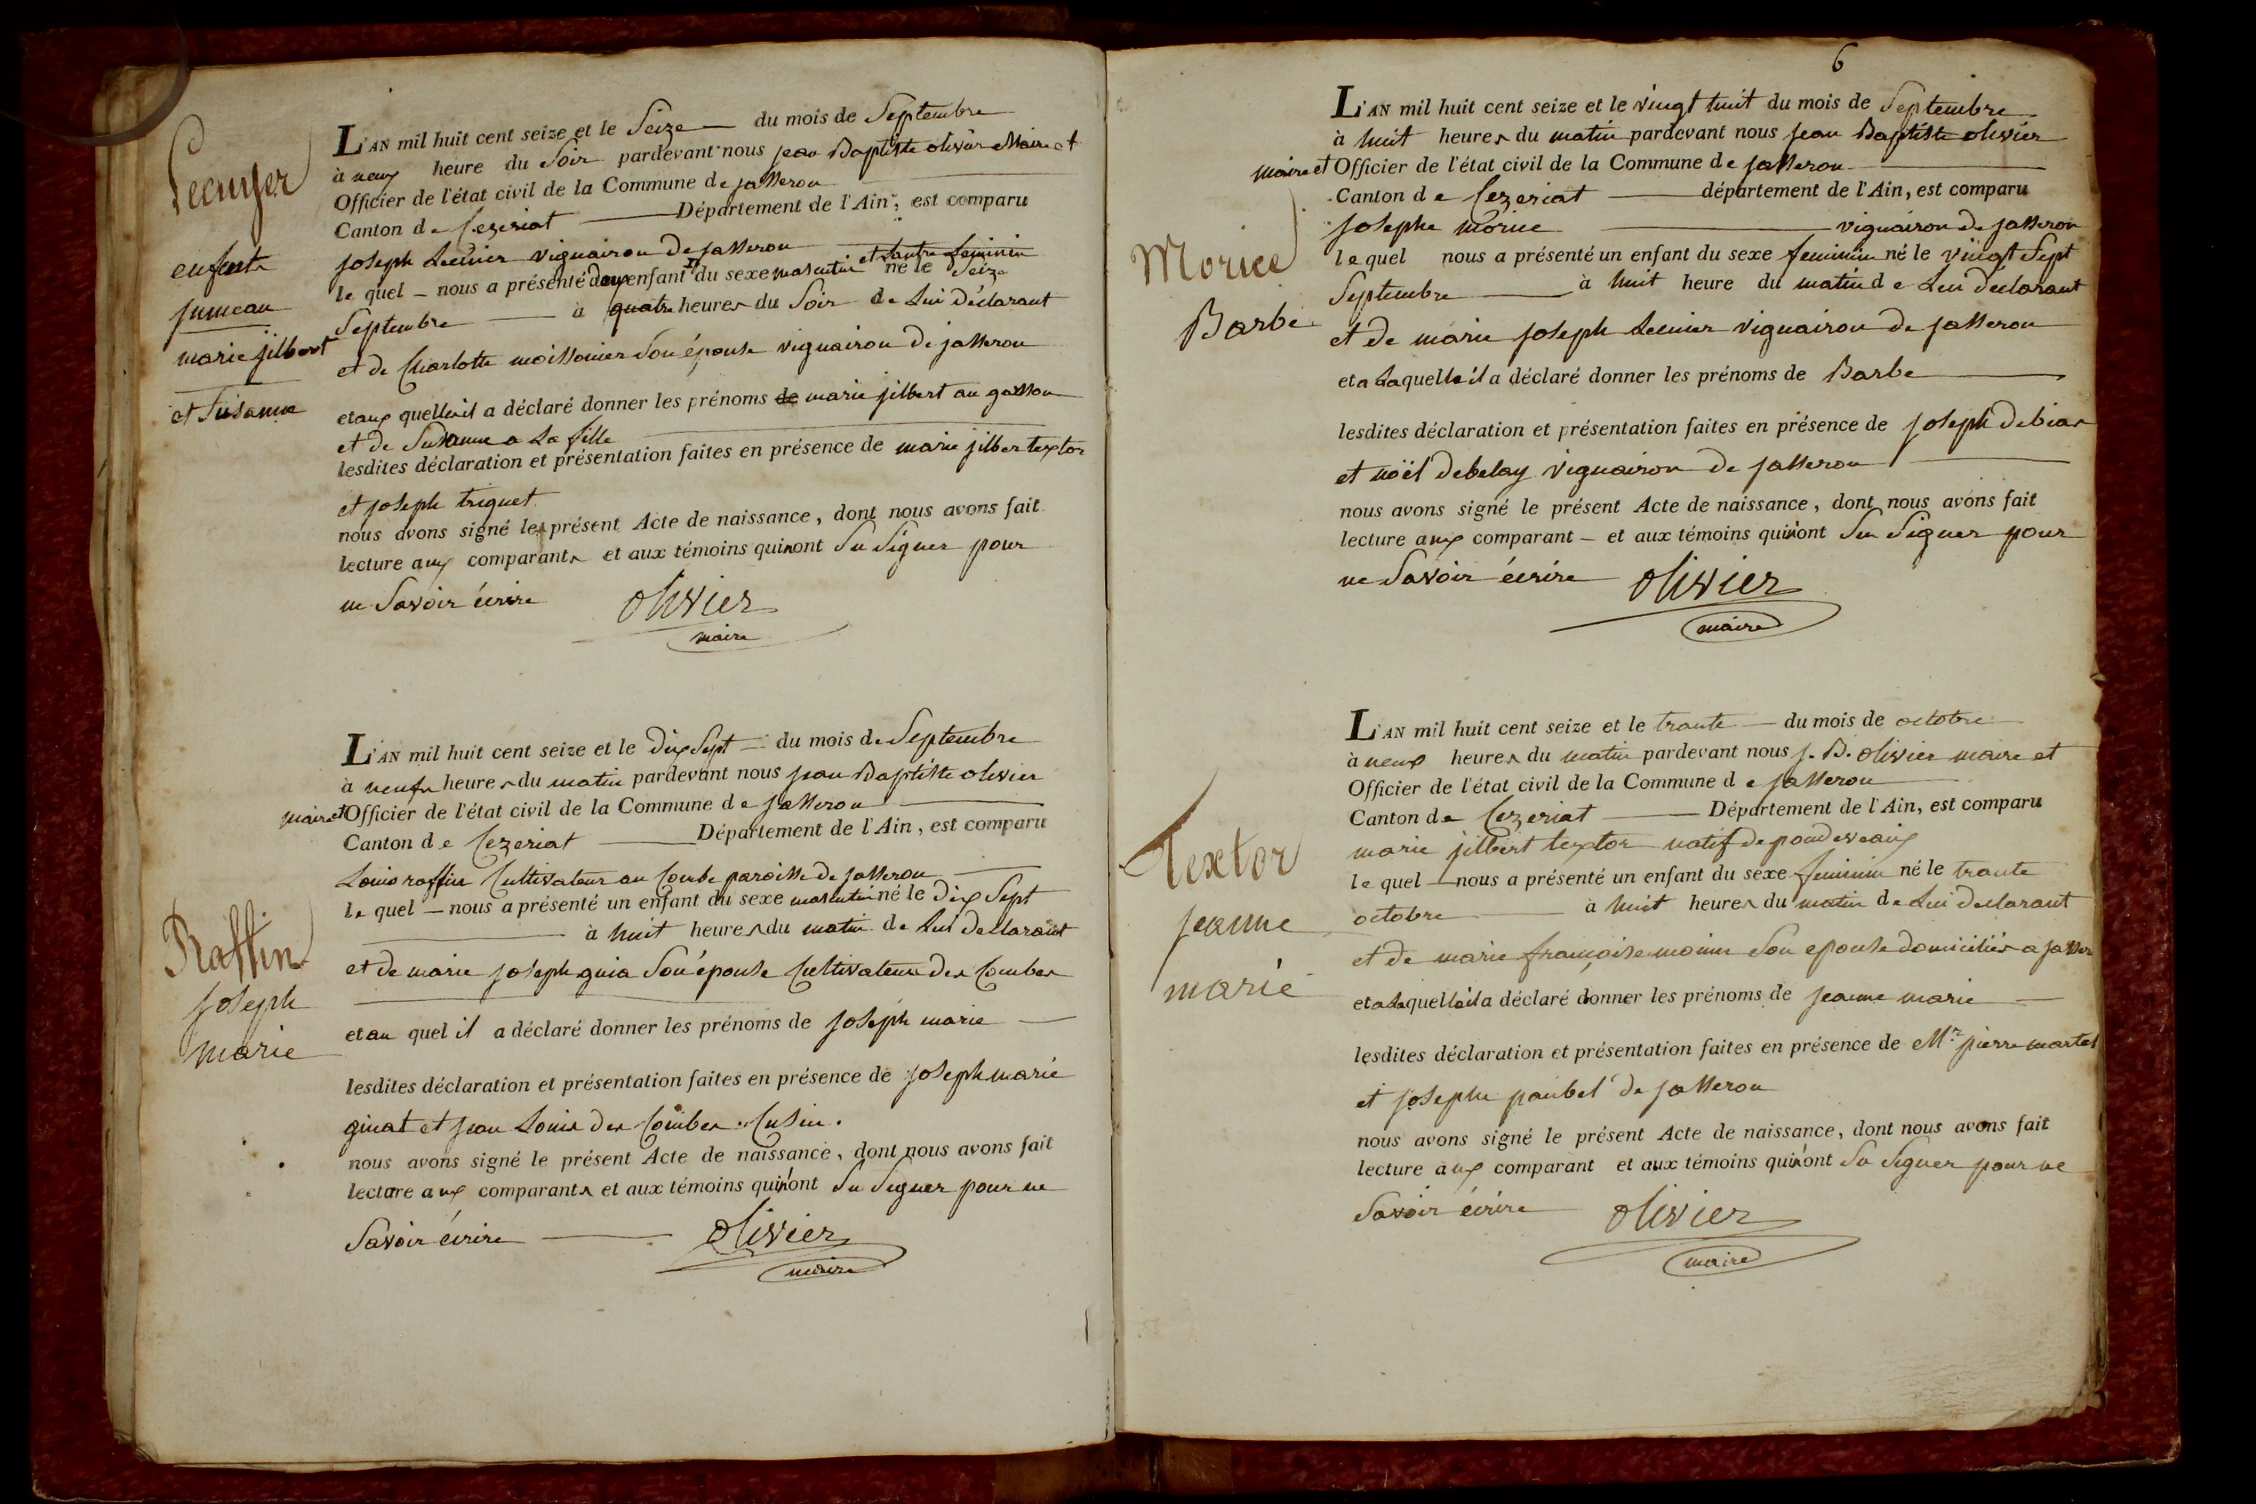 Lecuyer
enfents
jumeau
marie jilbert
et Susanne
L'AN mil huit cent seize et le Seize du mois de Septembre
à neuf heure du Soir pardevant nous jean Baptiste olivier Maire et
Officier de l'état civil de la Commune de jasseron
Canton de Cezeriat Département de l'Ain, est comparu
joseph Lecuier vignairon de jasseron et lautre feminin
le quel nous a présenté deux enfant du sexe masculin né le Seize
Septembre à quatre heures du Soir de Lui déclarant
et de Charlotte moissonier Son épouse vignairon de jasseron
et aux quelle il a déclaré donner les prénoms de marie jilbert au gasson
et de Susanne a La fille
lesdites déclaration et présentation faites en présence de marie jilber textor
et joseph triquet
nous avons signé le présent Acte de naissance, dont nous avons fait
lecture aux comparants et aux témoins qui nont Su Signer pour
ne Savoir écrire olivier
maire
Raffin
joseph
marie
L'AN mil huit cent seize et le dix Sept du mois de Septembre
à neufs heures du matin pardevant nous jean Baptiste olivier
maire et Officier de l'état civil de la Commune de jasseron
Canton de Cezeriat Département de l'Ain, est comparu
Louis raffin Cultivateur au Combe paroisse de jasseron
le quel nous a présenté un enfant du sexe masculin né le dix Sept
à huit heures du matin de Lui declarant
et de marie joseph guia Son épouse Cultivateur des Combes
et au quel il a déclaré donner les prénoms de joseph marie
lesdites déclaration et présentation faites en présence de joseph marie
guiat et jean Louis des Combes Cusin.
nous avons signé le présent Acte de naissance, dont nous avons fait
lecture aux comparants et aux témoins qui n'ont Su Signer pour ne
Savoir écrire olivier
maire
6
Morice
Barbe
L'AN mil huit cent seize et le vingt huit du mois de Septembre
à huit heures du matin pardevant nous jean Baptiste olivier
maire et Officier de l'état civil de la Commune de jasseron
Canton de Cezeriat département de l'Ain, est comparu
josephe morice vignairon de jasseron
le quel nous a présenté un enfant du sexe feminin né le vingt Sept
Septembre à huit heure du matin de Lui déclarant
et de marie joseph Lecuier vignairon de jasseron
et a Laquelle il a déclaré donner les prénoms de Barbe
lesdites déclaration et présentation faites en présence de joseph debias
et noël debelay vignairon de jasseron
nous avons signé le présent Acte de naissance, dont nous avons fait
lecture aux comparant et aux témoins qui n'ont Su Signer pour
ne Savoir écrire olivier
maire
Textor
jeanne
marie
L'AN mil huit cent seize et le trante du mois de octobre
à neuf heures du matin pardevant nous j. B. olivier maire et
Officier de l'état civil de la Commune de jasseron
Canton de Cezeriat Département de l'Ain, est comparu
marie jilbert textor natif de pondeveaux
le quel nous a présenté un enfant du sexe feminin né le trante
octobre à huit heures du matin de Lui declarant
et de marie françoise monin Son epouse domiciliés a jasser
et a Laquelle il a déclaré donner les prénoms de jeanne marie
lesdites déclaration et présentation faites en présence de Mr pierre martel
et josephe paubel de jasseron
nous avons signé le présent Acte de naissance, dont nous avons fait
lecture aux comparant et aux témoins qui n'ont Su Signer pour ne
Savoir écrire olivier
maire